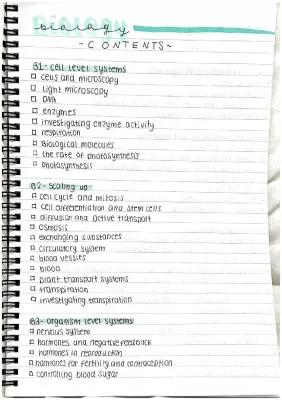 BIOLOGY
biology
~CONTENTS~
B1- cell level systems
□ cells and microscopy
□ light microscopy
□ DNA
□ enzymes
□ investigating enzyme activity
□ respiration
□ Biological molecules
□ the rate of photosynthesis
□ photosynthesis
B2- scaling up
□ cell cycle and mitosis
□ cell differentiation and stem cells
□ diffusion and active transport
□ osmosis
□ exchanging substances
□ circulatory system
□ blood vessles
□ blood
□ plant transport systems
□ transpiration
□ investigating transpiration
B3- organism level systems
□ nervous system
□ hormones and negative feedback
□ hormones in reproduction
□ hormones for fertility and contraception
□ controlling blood sugar